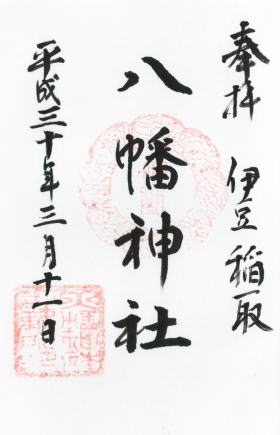 奉拝
伊豆稲取
八幡神社
平成三十年三月十一日